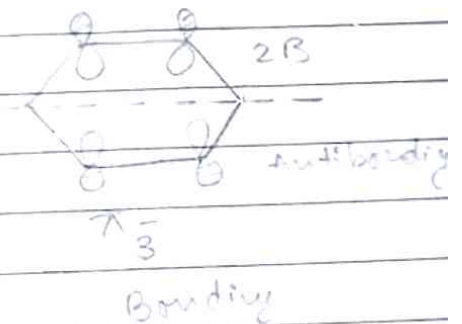 2B
Antibonding
π 3
Bonding